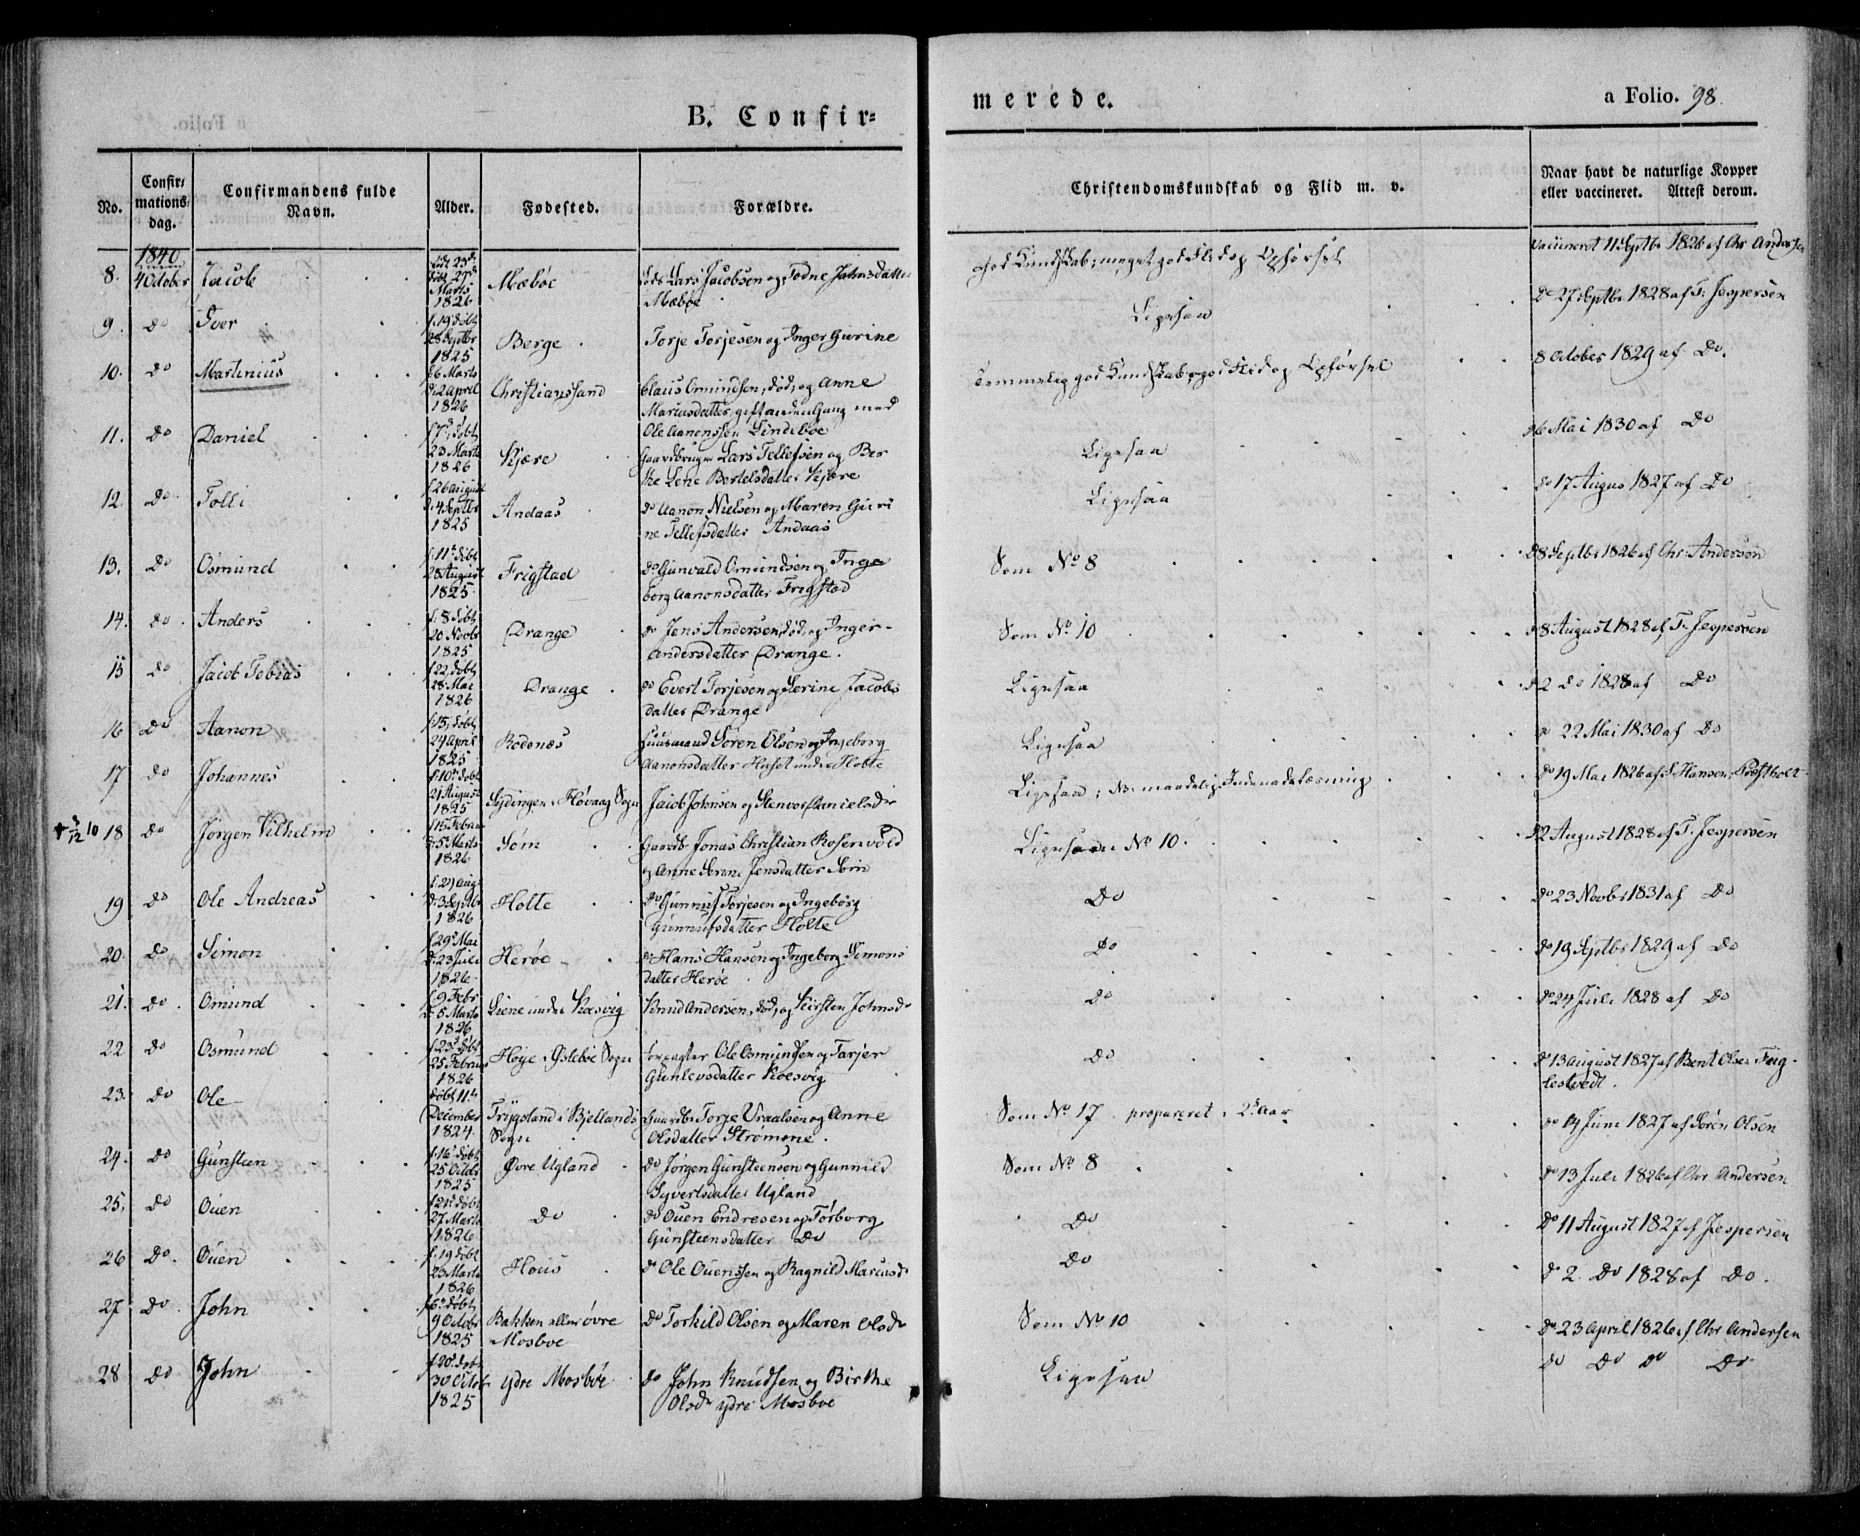 B. Confir=
merede.
a Folio. 98
No.
Confir=
mations=
dag.
Confirmandens fulde
Navn.
Alder.
Fødested.
Forældre.
Christendomskundskab og Flid m. v.
Naar havt de naturlige Kopper
eller vaccineret. Attest derom.
1840
8. 4 October Jacob
Marts
1826
Mæbøe
Lars Jacobsen og Todne Jahnsdatter
Mæbøe
god Kundskab, meget god Flid og Opførsel
vaccineret 11 Septbr 1826 af Chr Andersen
9. Do Iver
f. 19 døbt
28 Septbr
1825
Berge
Torje Torjesen og Inger Gurine
Ligesaa
Do 27 Septbr 1828 af T. Jespersen
10. Do Martinius
f. 6 Marts
d. 2 april
1826
Christianssand
Claus Omundsen, død, og Anne
Mariusdatter, gift anden Gang med
Ole Aanonssen Lindebøe
Temmelig god Kundskab, god Flid og Opførsel
8 October 1829 af Do.
11. Do Daniel
f. 7de, døbt
23 Marts
1826
Kjære
Gaardbruger Lars Tellefsen og Ber
the Lene Bertelsdatter Kjære
Ligesaa
6 Mai 1830 af Do
12. Do Tolli
f. 26 august
d. 4 Septbr
1825
Andaas
Do Aanon Nielsen og Maren Guri
ne Tellefsdatter Andaas
Ligesaa
Do 17 Augus 1827 af Do
13. Do Osmund
f. 11te døbt
28 August
1825
Frigstad
Do Gunvald Omundsen og Inge
borg Aanonsdatter Frigstad
Som No 8
8 Septbr 1826 af Chr. Andersen
14. Do. Anders
f. 8 døbt
20 Novbr
1825
Drange
Do Jens Andersen, død, og Inger
Andersdatter Drange.
Som No. 10
8 August 1828 af T. Jespersen
15 Do Jacob Tobias
f. 22, døbt
28 Mai
1826
Drange
Do Evert Torjesen og Serine Jacobs
datter Drange
Ligesaa
2 Do 1828 af Do
16 Do Aanon
f. 15, døbt
24 april
1825
Rodenæs
Huusmand Søren Olsen og Ingeborg
Aanonsdatter Huset under Holte
Ligesaa
22 Mai 1830 af Do
17 Do Johannes
f. 10de døbt
21 August
1825
Høvaag Sogn
Jacob Johnsen og
Ligesaa; NB. maadelig Indenadslæsning
Do 19 Mai 1826 af S Hansen
18 Do Jørgen Vilhelm
f. 15 Februar
d. 5 Marts
1826
Søm
Gaardb. Jonas Christian Rosenvold
og Anne Serene Jensdatter Søm
Ligesaa No 10
2 August 1828 af T. Jespersen
19 Do Ole Andreas
d. 3 Septbr
1826
Holte
Do Gunnuf Torjesen og Ingeborg
Gunnufsdatter Holte
Do
Do 23 Novbr 1831 af Do
20. Do Simon
f. 29de Mai
d. 23 Juli
1826
Herøe
Do Hans Hansen og Ingeborg Simons
datter Herøe
Do
Do 19 Septbr 1829 af Do
21. Do Osmund
f. 9 Febr
d. 5 Marts
1826
Liene under Koesvig
Knud Andersen, død, og Kirsten Johnsdr
Do
Do 24 Juli 1828 af Do
22 Do Osmund
f. 23d døbt
25 Februar
1826
Høye i Øslebøe Sogn
Forpagter Ole Osmundsen og Tarjer
Gunlevsdatter Koesvig
Do
Do 13 August 1827 af Bent Olsen Fug-
lestvedt.
23. Do Ole
døbt 11te
December
1824.
Trygsland i Bjellands
Sogn
Gaardbr Torje Vraalsen og Anne
Olsdatter Strømene.
Som No 17 præpareret i 2de Aar
Do 14 Juni 1827 af Søren Olsen
24. Do Gunsteen
f. 16 døbt
25 Octbr
1825
Øvre Ugland
Do Jørgen Gunsteensen og Gunnild
Syvertsdatter Ugland
Som No 8
Do 13 Juli 1826 af Chr Andersen
25. Do Ouen
f. 21de døbt
27 Marts
1826
Do
Do Ouen Endresen og Tørborg
Gunsteensdatter Do
Do
Do 11 August 1827 af Jespersen
26 Do. Ouen
f. 19 døbt
23 Marts
1826
Høiis
Do Ole Ouenssen og Ragnild Mariusdr
Do
Do 2. Do 1828 af Do.
27 Do. John
f. 6te døbt
9 Octobr
1825
Bakken eller øvre
Mosbøe
Do Torkild Olsen og Maren Olsdr
Som No 10
Do 23 April 1826 af Chr Andersen
28 Do John
f. 20de døbt
30 Octobr
1825
ydre Mosbøe
Do John Knudsen og Birthe
Olsdr ydre Mosbøe
Ligesaa
Do Do Do Do